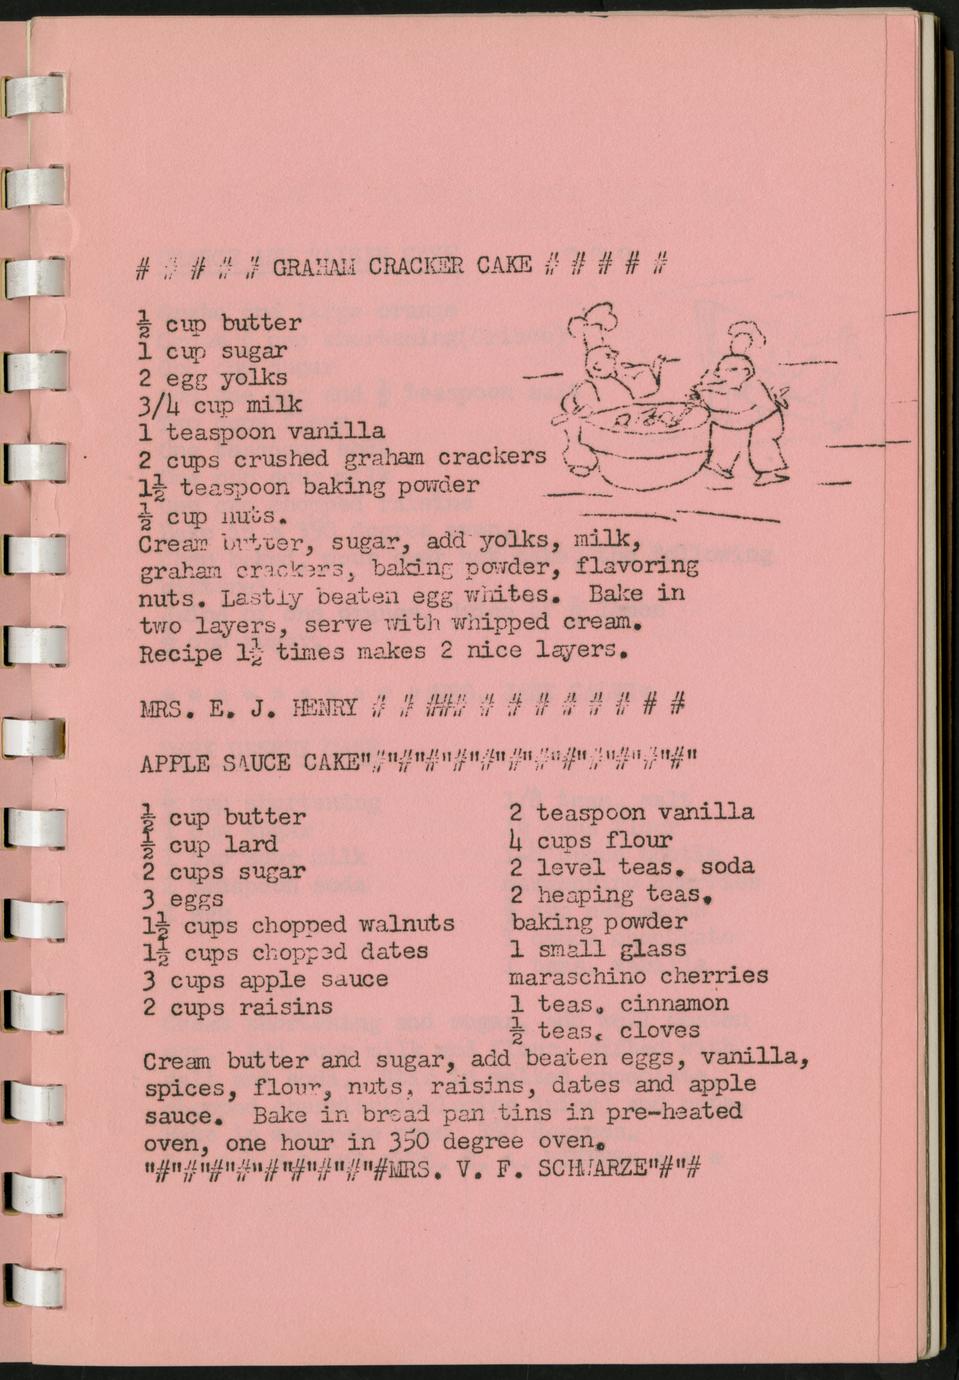 # # # # # GRAHAM CRACKER CAKE # # # # #
½ cup butter
1 cup sugar
2 egg yolks
3/4 cup milk
1 teaspoon vanilla
2 cups crushed graham crackers
1½ teaspoon baking powder
½ cup nuts.
Cream butter, sugar, add yolks, milk,
graham crackers, baking powder, flavoring
nuts. Lastly beaten egg whites. Bake in
two layers, serve with whipped cream.
Recipe 1½ times makes 2 nice layers.
MRS. E. J. HENRY # # ### # # # # # # # #
APPLE SAUCE CAKE"#"#"#"#"#"#"#"#"#"#"#"#"
½ cup butter
½ cup lard
2 cups sugar
3 eggs
1½ cups chopped walnuts
1½ cups chopped dates
3 cups apple sauce
2 cups raisins
2 teaspoon vanilla
4 cups flour
2 level teas. soda
2 heaping teas.
baking powder
1 small glass
maraschino cherries
1 teas. cinnamon
½ teas. cloves
Cream butter and sugar, add beaten eggs, vanilla,
spices, flour, nuts, raisins, dates and apple
sauce. Bake in bread pan tins in pre-heated
oven, one hour in 350 degree oven.
"#"#"#"#"#"#"#"#"#MRS. V. F. SCHWARZE"#"#